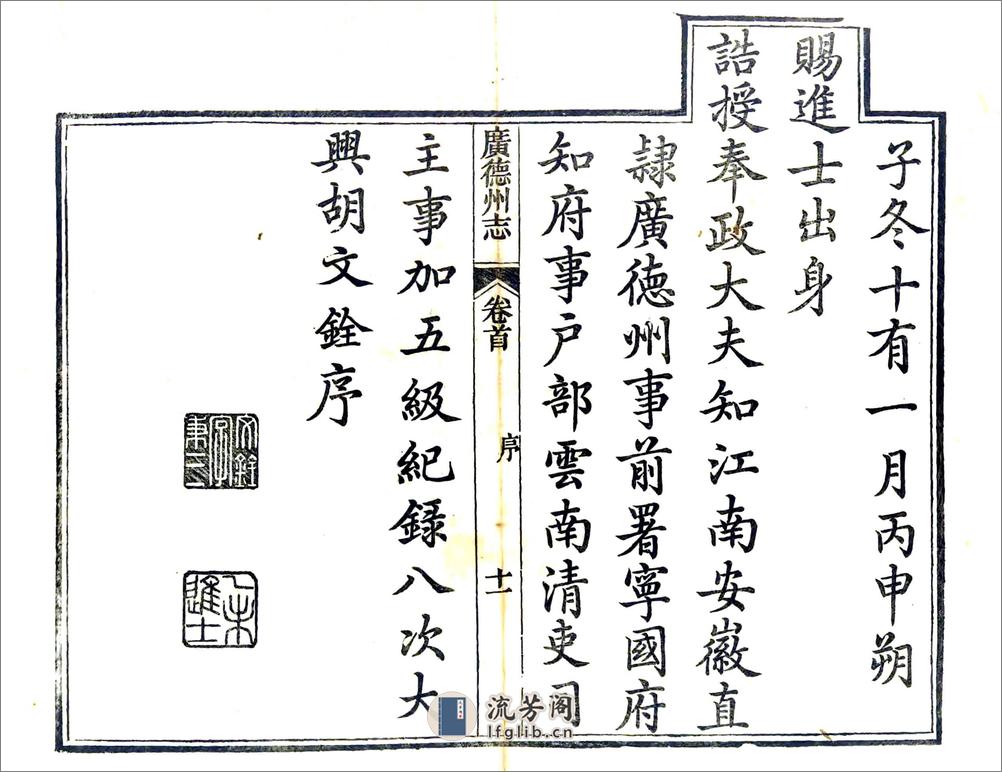 子冬十有一月丙申朔
賜進士出身
誥授奉政大夫知江南安徽直
隸廣德州事前署寧國府
知府事户部雲南清吏司
廣德州志
卷首
序
十一
主事加五級紀録八次大
興胡文銓序
辛未
進士
流芳阁
lfglib.cn